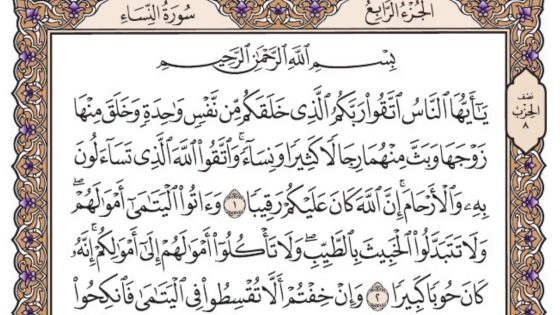 سُورَةُ النِّسَاءِ
الجُزْءُ الرَّابِعُ
بِسْمِ اللَّهِ الرَّحْمَٰنِ الرَّحِيمِ
يَٰٓأَيُّهَا النَّاسُ اتَّقُوا۟ رَبَّكُمُ الَّذِى خَلَقَكُم مِّن نَّفْسٍ وَٰحِدَةٍ وَخَلَقَ مِنْهَا
زَوْجَهَا وَبَثَّ مِنْهُمَا رِجَالًا كَثِيرًا وَنِسَآءً ۚ وَاتَّقُوا۟ اللَّهَ الَّذِى تَسَآءَلُونَ
بِهِۦ وَالْأَرْحَامَ ۚ إِنَّ اللَّهَ كَانَ عَلَيْكُمْ رَقِيبًا ١ وَءَاتُوا۟ الْيَتَٰمَىٰٓ أَمْوَٰلَهُمْ ۖ
وَلَا تَتَبَدَّلُوا۟ الْخَبِيثَ بِالطَّيِّبِ ۖ وَلَا تَأْكُلُوٓا۟ أَمْوَٰلَهُمْ إِلَىٰٓ أَمْوَٰلِكُمْ ۚ إِنَّهُۥ
كَانَ حُوبًا كَبِيرًا ٢ وَإِنْ خِفْتُمْ أَلَّا تُقْسِطُوا۟ فِى الْيَتَٰمَىٰ فَانكِحُوا۟
نصف
الحِزْب
٨